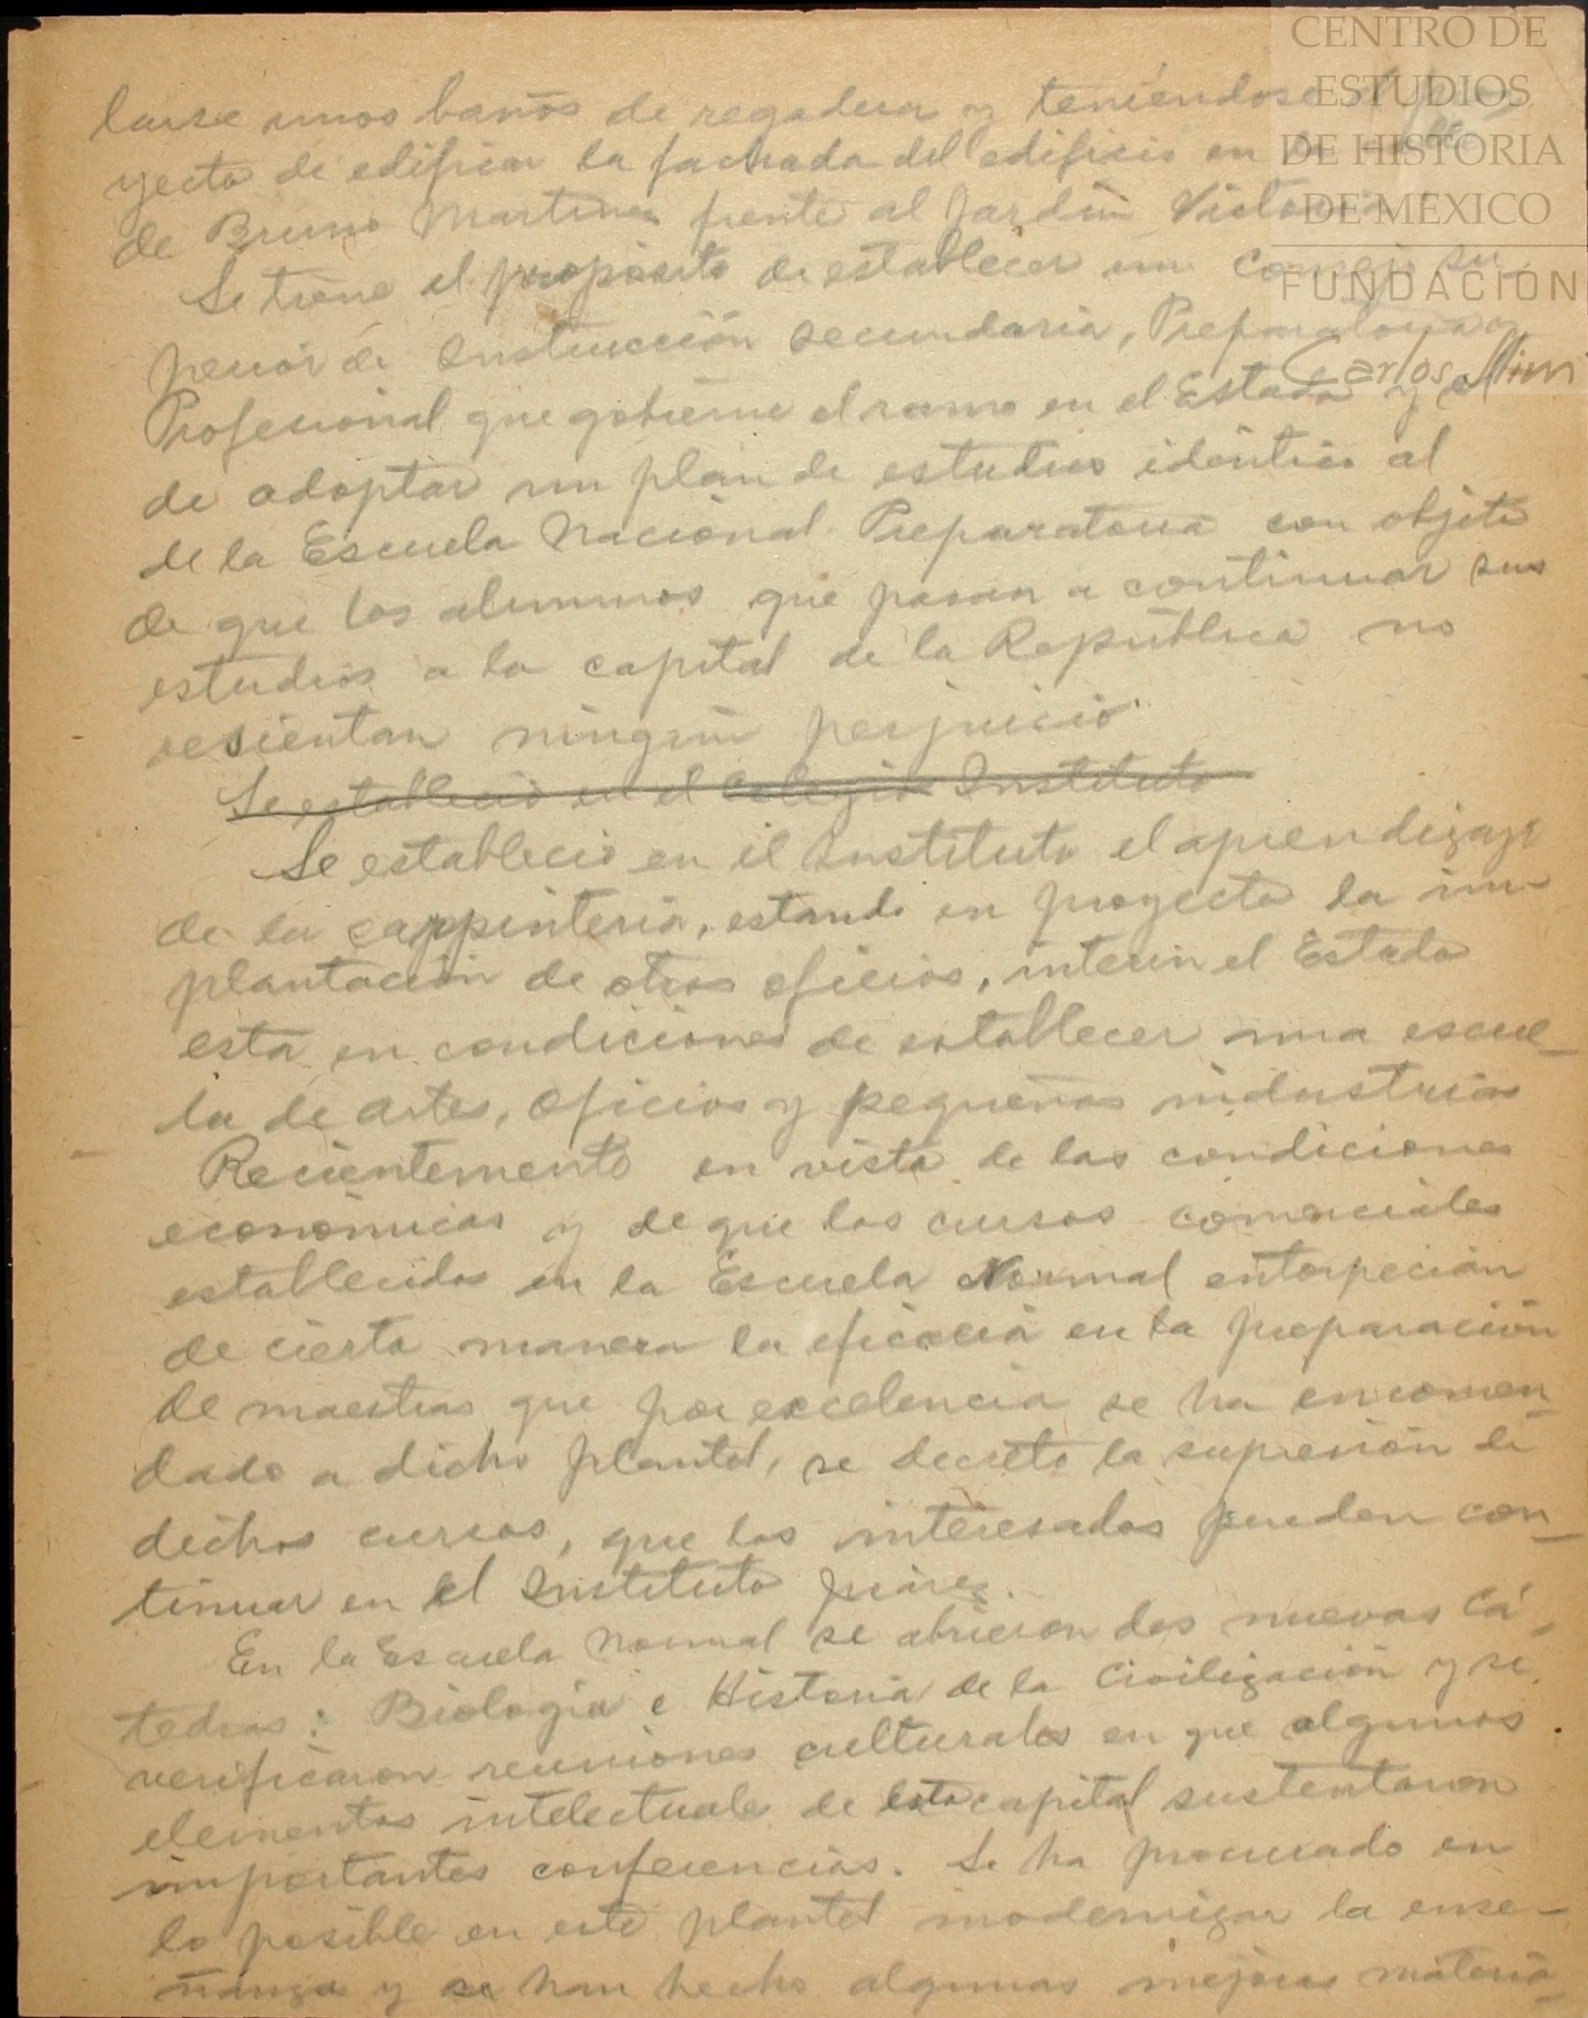 CENTRO DE
ESTUDIOS
DE HISTORIA
DE MÉXICO
FUNDACIÓN
Carlos Slim
larse unos baños de regadera y teniéndose
yecto de edificar la fachada del edificio en la
de Bruno Martinez frente al Jardín Victoria
Se tiene el propósito de establecer un consejo su
perior de Instrucción secundaria, Preparatoria y
Profesional que gobierne el ramo en el Estado y el
de adoptar un plan de estudios idéntico al
de la Escuela Nacional Preparatoria con objeto
de que los alumnos que pasan a continuar sus
estudios a la capital de la República no
resientan ningún perjuicio.
Se estableció en el Colegio Instituto
Se estableció en el Instituto el aprendizaje
de la carpintería, estando en proyecto la im-
plantación de otros oficios, interin el Estado
está en condiciones de establecer una escue-
la de artes, oficios y pequeñas industrias
Recientemente en vista de las condiciones
económicas y de que los cursos comerciales
establecidos en la Escuela Normal entorpecían
de cierta manera la eficacia en la preparación
de maestras que por excelencia se ha encomen-
dado a dicho plantel, se decretó la supresión de
dichos cursos, que los interesados pueden con-
tinuar en el Instituto Juárez.
En la Escuela Normal se abrieron dos nuevas Cá-
tedras: Biología e Historia de la Civilización y se
verificaron reuniones culturales en que algunos
elementos intelectuales de esta capital sustentaron
importantes conferencias. Se ha procurado en
lo posible en este plantel modernizar la ense-
ñanza y se han hecho algunas mejoras materia-